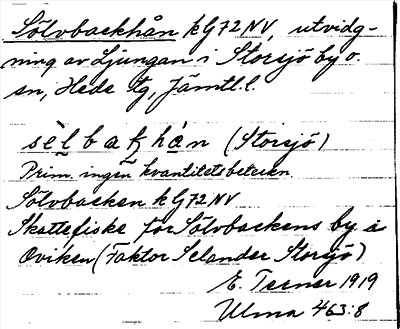 Sölvbackhån k G72 NV, utvidg-
ning av Ljungan i Storsjö by o.
sn, Hede tg, Jämtl.l.
sèlbakhån (Storsjö)
Prim. ingen kvantitetsbeteckn.
Sölvbacken k G72 NV
Skattefiske för Sölvbackens by i
Oviken (Faktor Selander Storsjö)
E. Terner 1919
Ulma 463:8